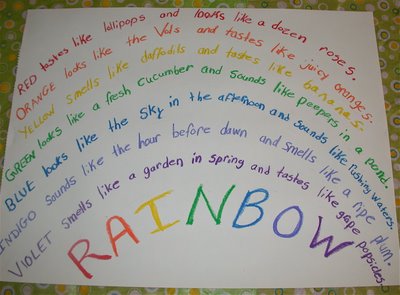 RED tastes like lollipops and looks like a dozen roses.
ORANGE looks like the Vols and tastes like juicy oranges.
YELLOW smells like daffodils and tastes like bananas.
GREEN looks like a fresh cucumber and sounds like peepers in a pond.
BLUE looks like the sky in the afternoon and sounds like rushing waters.
INDIGO sounds like the hour before dawn and smells like a ripe plum.
VIOLET smells like a garden in spring and tastes like grape popsicles.
RAINBOW